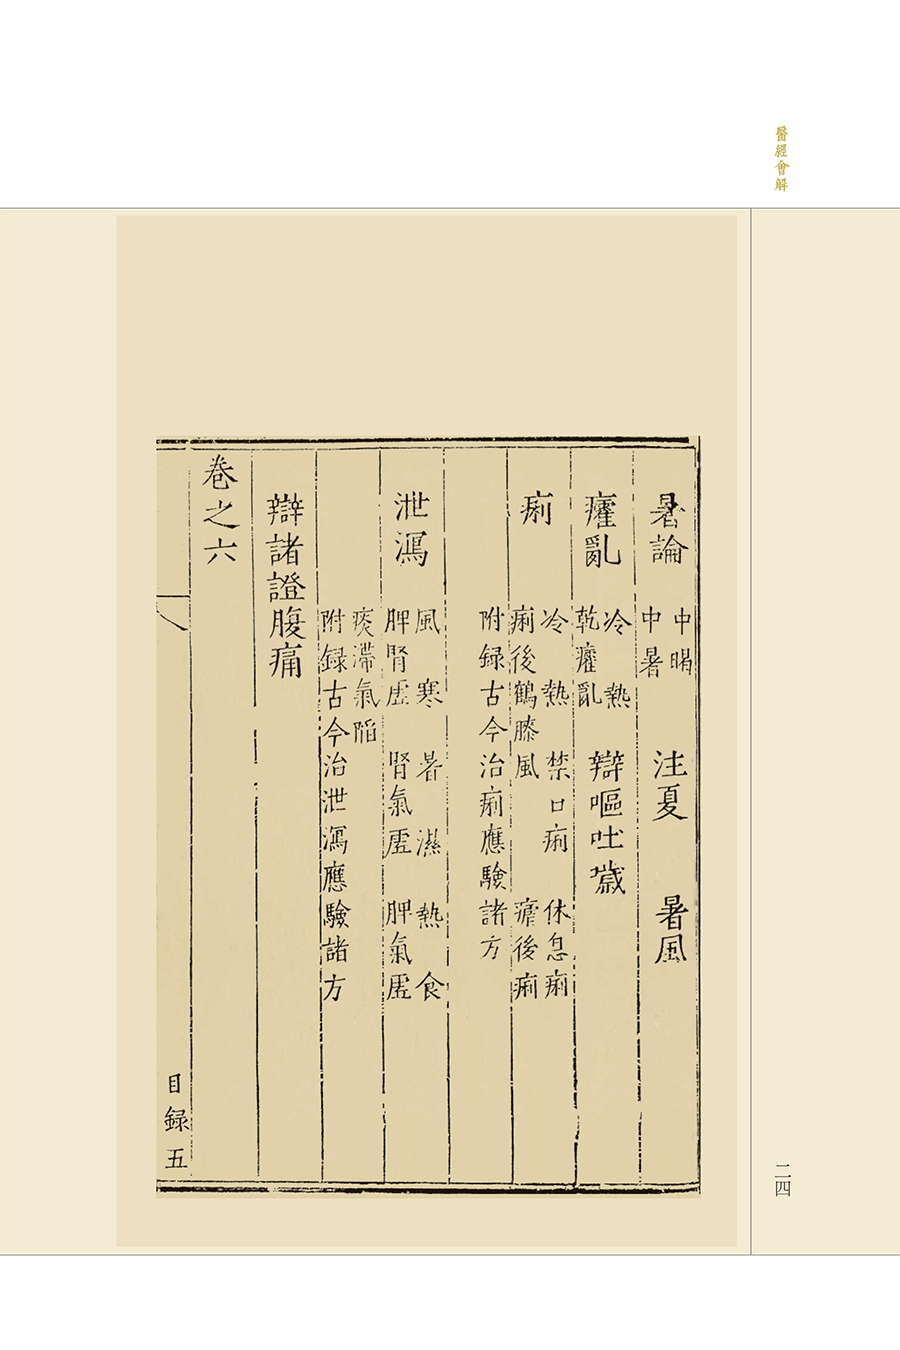 醫經會解
暑論 中暍 注夏 暑風
中暑
癨亂 冷熱 辯嘔吐噦
乾癨亂
痢 冷 熱 禁口痢 休息痢
痢後鶴膝風 瘧後痢
附録古今治痢應驗諸方
泄瀉 風 寒 暑 濕 熱 食
脾腎虛 腎氣虛 脾氣虛
痰滯氣陷
附録古今治泄瀉應驗諸方
辯諸證腹痛
卷之六
目録五
二四